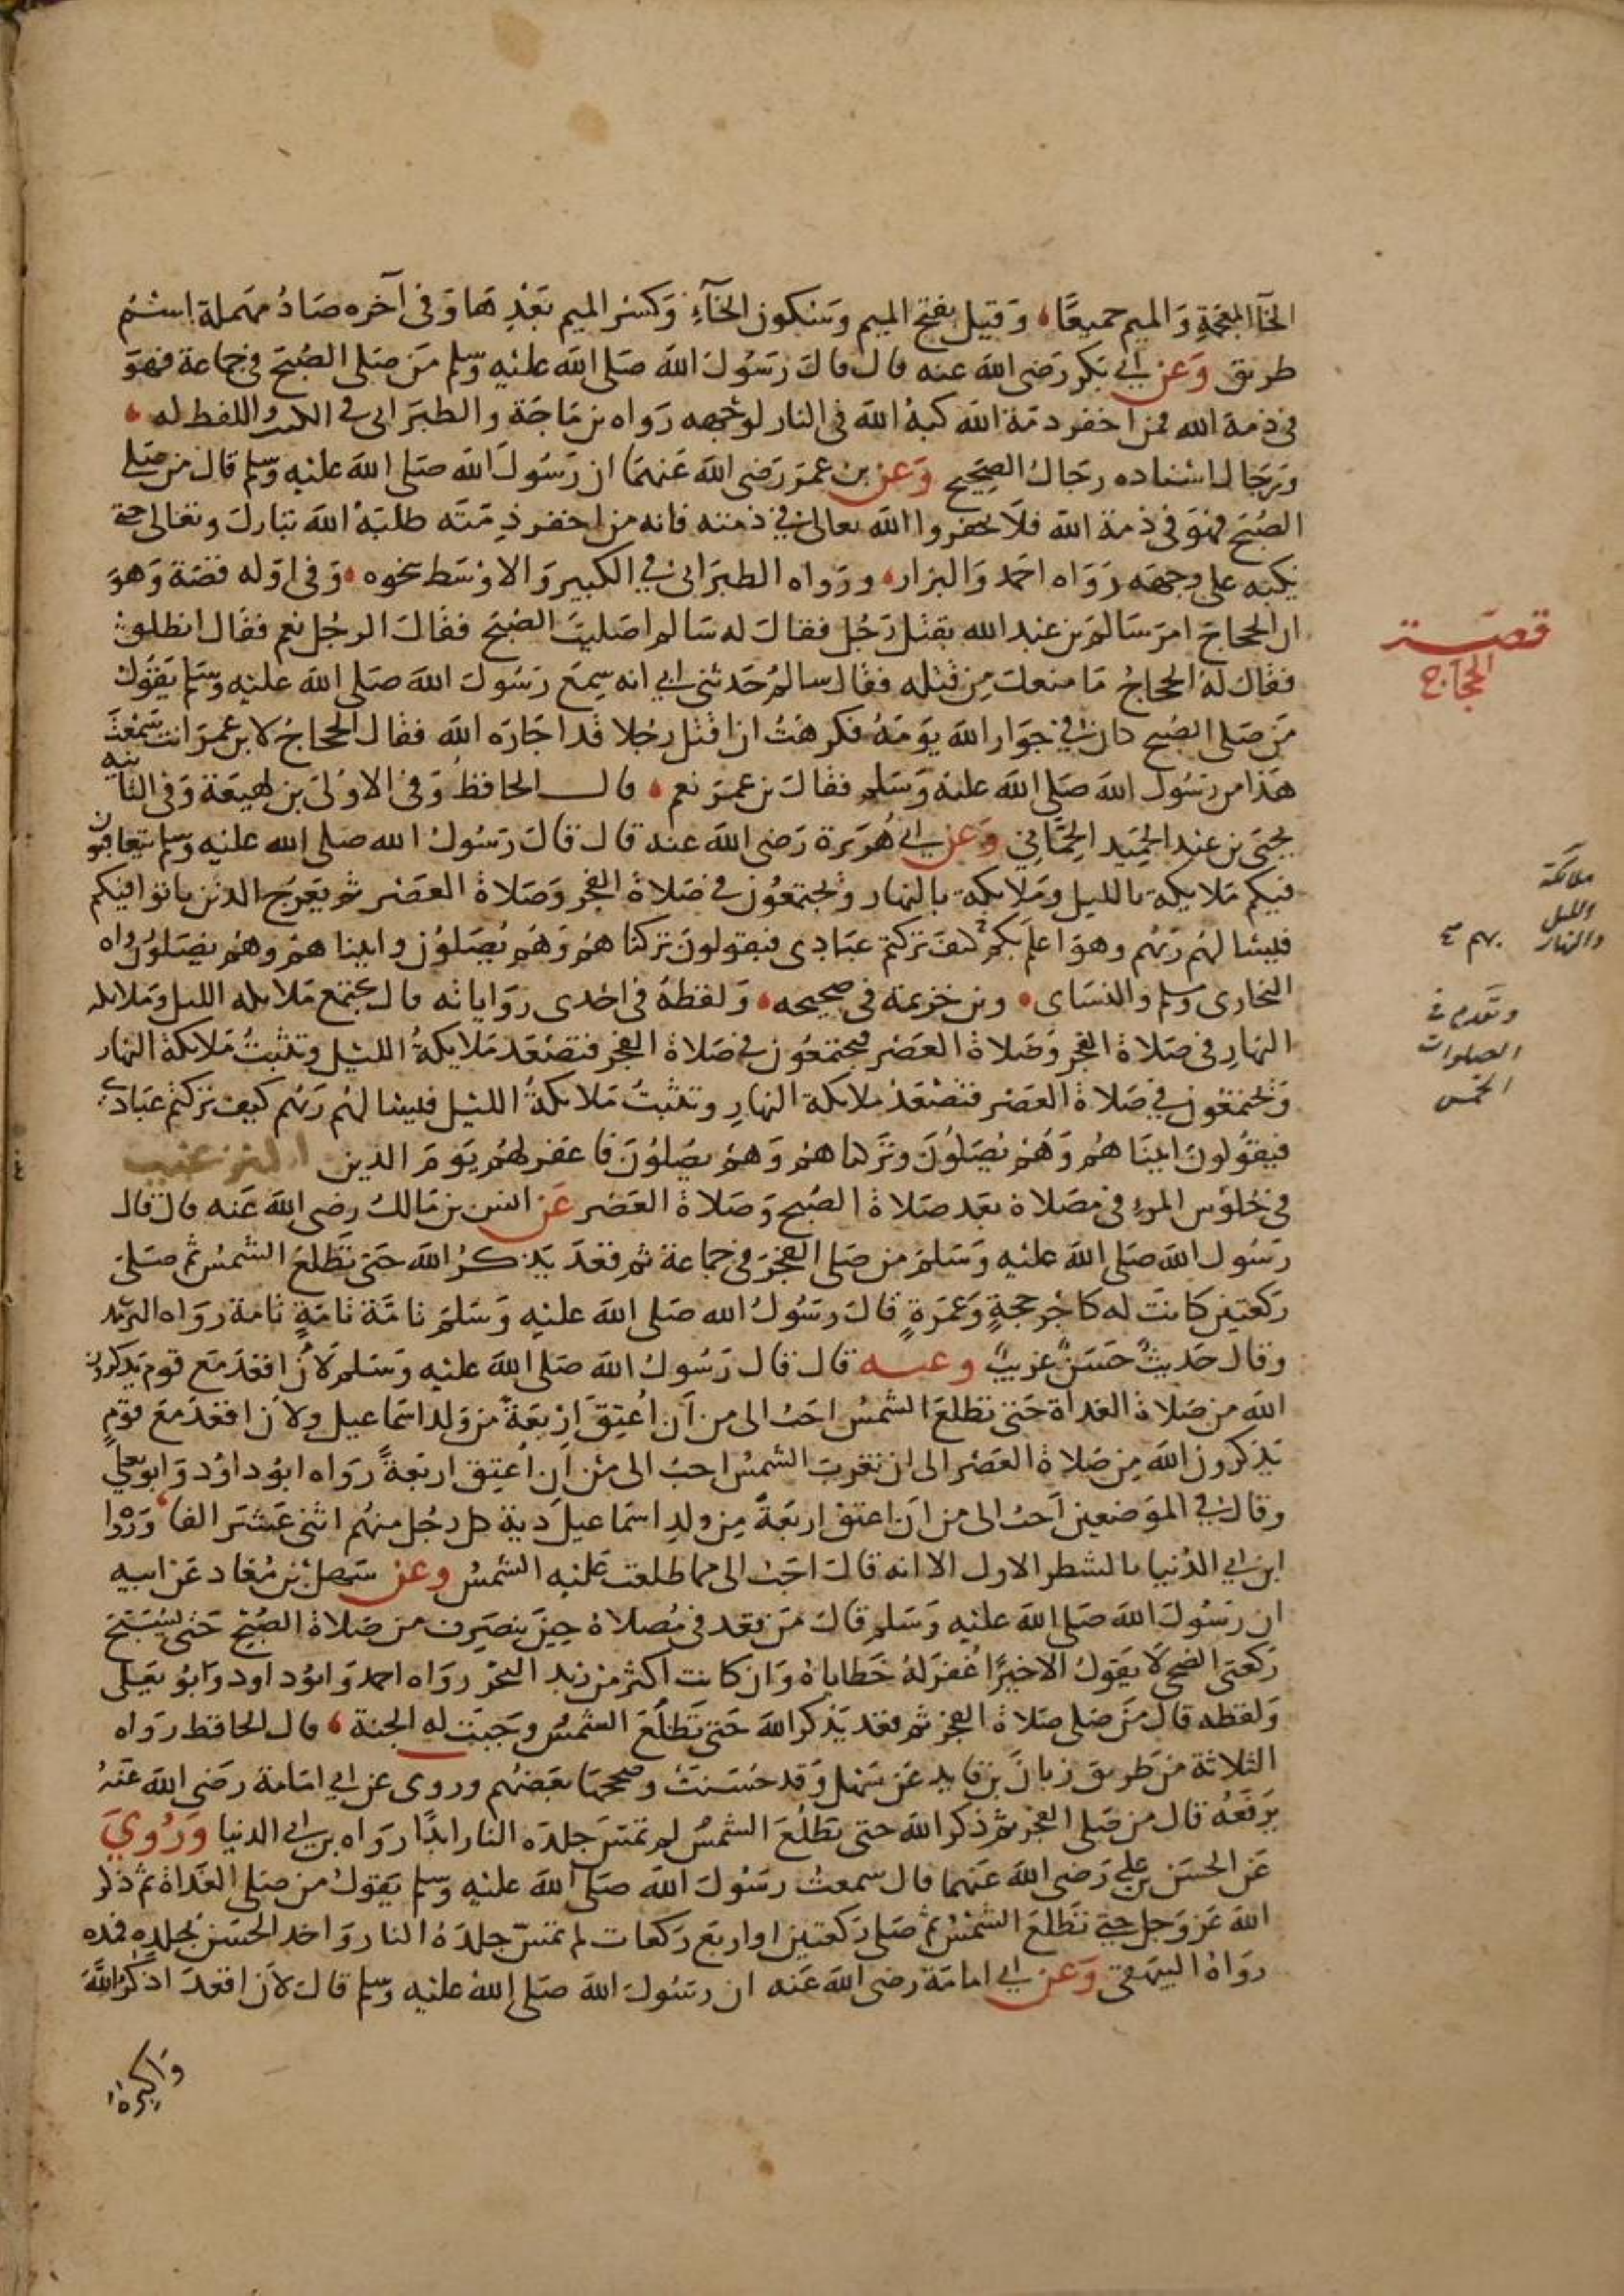 الخآ المعجمة والميم جميعًا وقيل بفتح الميم وسكون الخآء وكسر الميم بعدها وفى آخره صاد مهملة اسم
طريق وعن ابي بكر رضى الله عنه قال قال رسول الله صلى الله عليه وسلم من صلى الصبح فى جماعة فهو
فى ذمة الله فمن اخفر ذمة الله كبه الله فى النار لوجهه رواه بن ماجة والطبرانى فى الكبير واللفظ له
ورجال اسناده رجال الصحيح وعن بن عمر رضى الله عنهما ان رسول الله صلى الله عليه وسلم قال من صلى
الصبح فهو فى ذمة الله فلا تخفروا الله تعالى في ذمته فانه من اخفر ذمته طلبه الله تبارك وتعالى حتى
يكبه على وجهه رواه احمد والبزار ورواه الطبرانى في الكبير والاوسط بنحوه وفى اوله قصة وهو
ان الحجاج امر سالم بن عبد الله بقتل رجل فقال له سالم اصليت الصبح فقال الرجل نعم فقال انطلق
فقال له الحجاج ما منعك من قتله فقال سالم حدثنى ابي انه سمع رسول الله صلى الله عليه وسلم يقول
من صلى الصبح كان في جوار الله يومه فكرهت ان اقتل رجلا قد اجاره الله فقال الحجاج لابن عمر انت سمعت
هذا من رسول الله صلى الله عليه وسلم فقال بن عمر نعم قال الحافظ وفى الاولى بن لهيعة وفى الثانيه
يحيى بن عبد الحميد الحمانى وعن ابي هريرة رضى الله عنه قال قال رسول الله صلى الله عليه وسلم يتعاقبون
فيكم ملايكة بالليل وملايكة بالنهار ويجتمعون في صلاة الفجر وصلاة العصر ثم يعرج الذين باتوا فيكم
فيسالهم ربهم وهو اعلم بكم كيف تركتم عبادى فيقولون تركناهم وهم يصلون واتيناهم وهم يصلون رواه
البخارى وسلم والنساى وبن خزيمة فى صحيحه ولفظه فى احدى رواياته قال تجتمع ملايكة الليل وملايكة
النهار فى صلاة الفجر وصلاة العصر فيجتمعون في صلاة الفجر فتصعد ملايكة الليل وتثبت ملايكة النهار
ويجتمعون في صلاة العصر فتصعد ملايكة النهار وتثبت ملايكة الليل فيسالهم ربهم كيف تركتم عبادي
فيقولون اتيناهم وهم يصلون وتركناهم وهم يصلون فاغفر لهم يوم الدين الترغيب
فى جلوس المرء فى مصلاه بعد صلاة الصبح وصلاة العصر عن انس بن مالك رضى الله عنه قال قال
رسول الله صلى الله عليه وسلم من صلى الفجر فى جماعة ثم قعد يذكر الله حتى تطلع الشمس ثم صلى
ركعتين كانت له كاجر حجة وعمرة قال رسول الله صلى الله عليه وسلم تامة تامة تامة رواه الترمذ
وقال حديث حسن غريب وعنه قال قال رسول الله صلى الله عليه وسلم لان اقعد مع قوم يذكرون
الله من صلاة الغداة حتى تطلع الشمس احب الى من ان اعتق اربعة من ولد اسماعيل ولان اقعد مع قوم
يذكرون الله من صلاة العصر الى ان تغرب الشمس احب الى من ان اعتق اربعة رواه ابو داود وابو يعلي
وقال في الموضعين احب الى من ان اعتق اربعة من ولد اسماعيل دية كل رجل منهم اثنى عشر الفا ورواه
ابن ابي الدنيا بالشطر الاول الا انه قال احب الى مما طلعت عليه الشمس وعن سهل بن معاد عن ابيه
ان رسول الله صلى الله عليه وسلم قال من قعد فى مصلاه حين ينصرف من صلاة الصبح حتى يسبح
ركعتى الضحى لا يقول الا خيرًا غفر له خطاياه وان كانت اكثر من زبد البحر رواه احمد وابو داود وابو يعلى
ولفظه قال من صلى صلاة الفجر ثم قعد يذكر الله حتى تطلع الشمس وجبت له الجنة قال الحافظ رواه
الثلاثة من طريق زبان بن فايد عن سهل وقد حسنت وصححها بعضهم وروى عن ابي امامة رضى الله عنه
يرفعه قال من صلى الفجر ثم ذكر الله حتى تطلع الشمس لم تمس جلده النار ابدًا رواه بن ابي الدنيا وروي
عن الحسن بن علي رضى الله عنهما قال سمعت رسول الله صلى الله عليه وسلم يقول من صلى الغداة ثم ذكر
الله عز وجل حتى تطلع الشمس ثم صلى ركعتين او اربع ركعات لم تمس جلده النار واخد الحسن بجلده فمده
رواه البيهقى وعن ابي امامة رضى الله عنه ان رسول الله صلى الله عليه وسلم قال لان اقعد اذكر الله
واكبره
قصة
الحجاج
ملائكة
الليل
والنهار
وتقدم في
الصلوات
الخمس